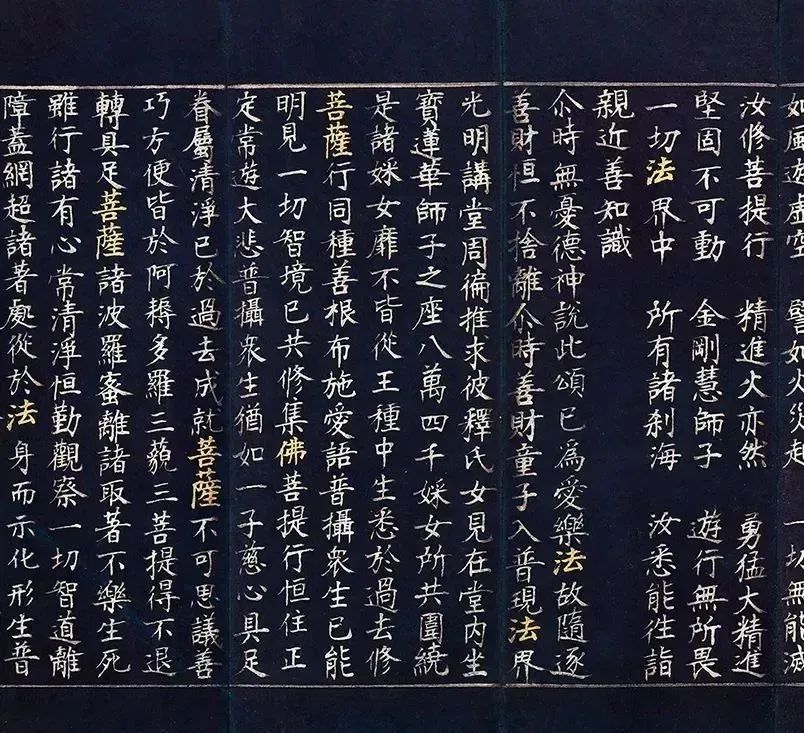 如風遊虛空　譬如火災起　一切無能滅
汝修菩提行　精進火亦然　勇猛大精進
堅固不可動　金剛慧師子　遊行無所畏
一切法界中　所有諸刹海　汝悉能徃詣
親近善知識
尒時無憂德神說此頌已為愛樂法故隨逐
善財恒不捨離尒時善財童子入普現法界
光明講堂周徧推求彼釋氏女見在堂內坐
寶蓮華師子之座八萬四千婇女所共圍繞
是諸婇女靡不皆從王種中生悉於過去修
菩薩行同種善根布施愛語普攝衆生已能
明見一切智境已共修集佛菩提行恒住正
定常遊大悲普攝衆生猶如一子慈心具足
眷屬清淨已於過去成就菩薩不可思議善
巧方便皆於阿耨多羅三藐三菩提得不退
轉具足菩薩諸波羅蜜離諸取著不樂生死
雖行諸有心常清淨恒勤觀察一切智道離
障蓋網超諸著處從於法身而示化形生普